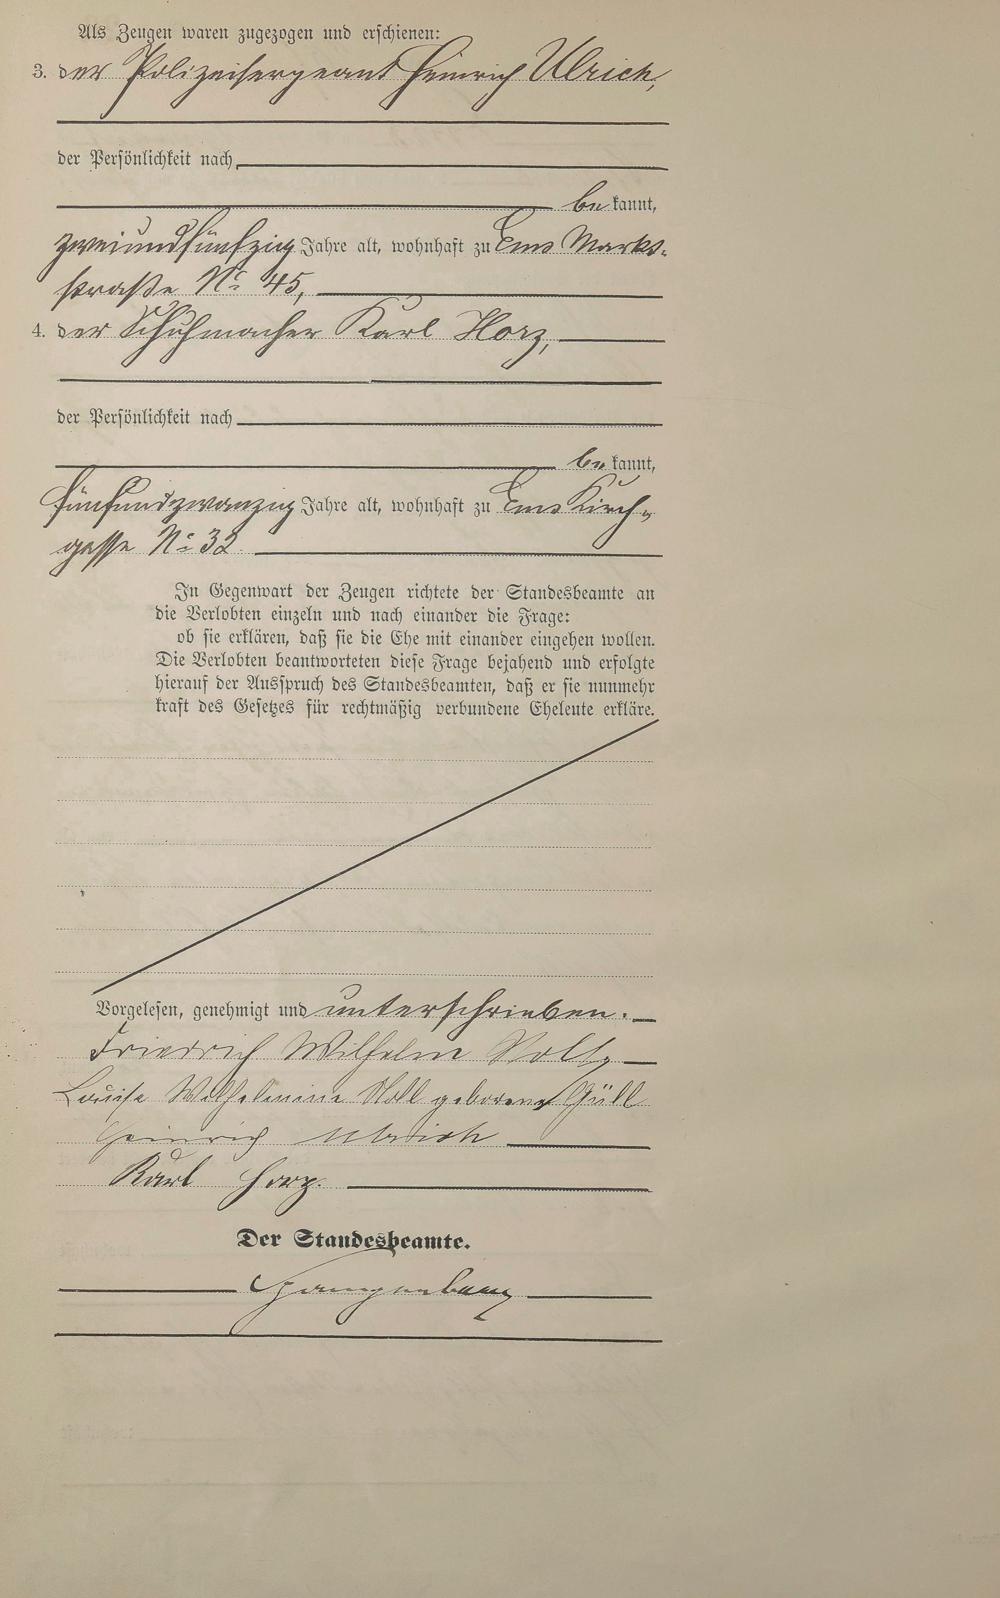 Als Zeugen waren zugezogen und erschienen:
3. der Polizeisergeant Heinrich Ulrich,
der Persönlichkeit nach
be kannt,
zweiundfünfzig Jahre alt, wohnhaft zu Ems Markt-
straße No 45,
4. der Schuhmacher Karl Horz,
der Persönlichkeit nach
be kannt,
fünfundzwanzig Jahre alt, wohnhaft zu Ems Kirch-
gasse No 32.
In Gegenwart der Zeugen richtete der Standesbeamte an
die Verlobten einzeln und nach einander die Frage:
ob sie erklären, daß sie die Ehe mit einander eingehen wollen.
Die Verlobten beantworteten diese Frage bejahend und erfolgte
hierauf der Ausspruch des Standesbeamten, daß er sie nunmehr
kraft des Gesetzes für rechtmäßig verbundene Eheleute erkläre.
Vorgelesen, genehmigt und unterschrieben.
Friedrich Wilhelm Noll,
Louise Wilhelmine Noll geborene Güll
Heinrich Ulrich
Karl Horz.
Der Standesbeamte.